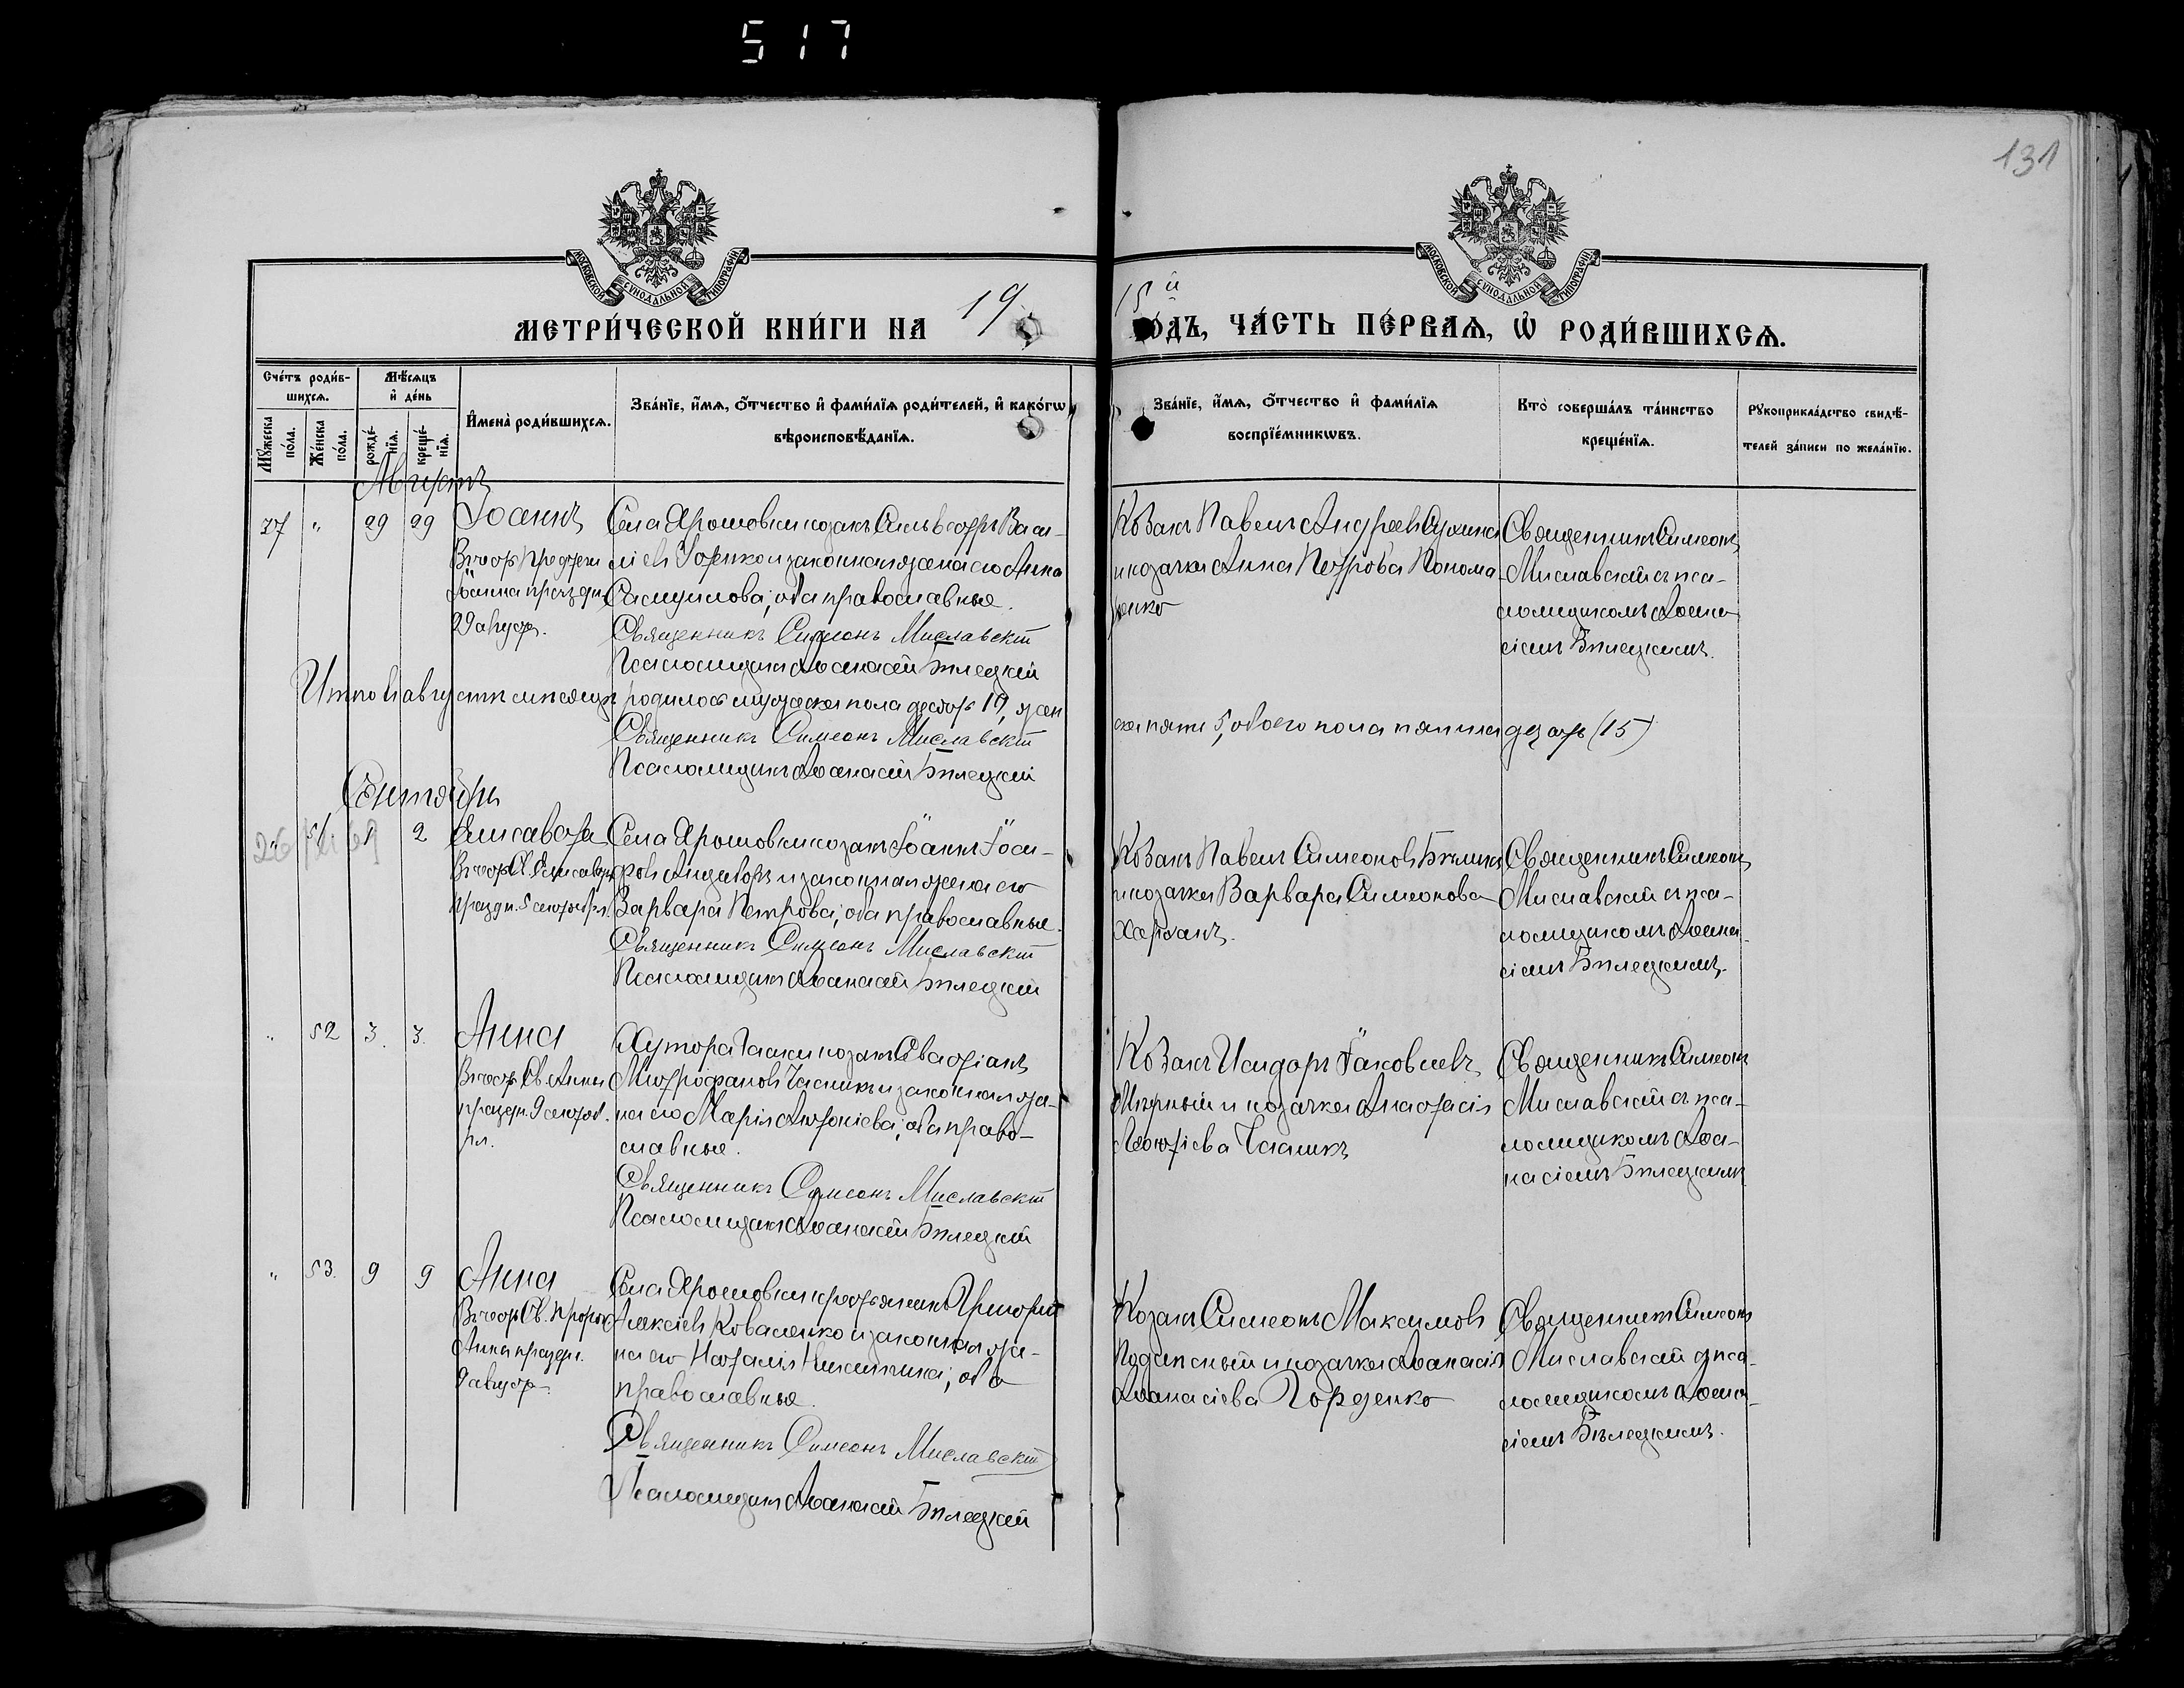 517
131
МОСКОВСКОЙ СѴНОДАЛЬНОЙ ТИПОГРАФІИ
МОСКОВСКОЙ СѴНОДАЛЬНОЙ ТИПОГРАФІИ
МЕТРИ́ЧЕСКОЙ КНИ́ГИ НА 1915й ГО́ДЪ, ЧА́СТЬ ПЕ́РВАѦ, Ѡ҆ РОДИ́ВШИХСѦ.
Сче́тъ роди́в-
шихсѧ.
Мѣ́сѧцъ
и҆ де́нь
Мꙋ́жеска
по́ла.
Же́нска
по́ла.
рожде́-
нїѧ.
креще́-
нїѧ.
И҆мена̀ роди́вшихсѧ.
Зва́нїе, и҆́мѧ, ѻ҆́тчество и҆ фами́лїѧ роди́телей, и҆ како́гѡ
вѣроисповѣ́данїѧ.
Зва́нїе, и҆́мѧ, ѻ҆́тчество и҆ фами́лїѧ
воспрїе́мникѡвъ.
Кто̀ соверша́лъ та́инство
креще́нїѧ.
Рꙋкоприкла́дство свидѣ́-
телей за́писи по жела́нїю.
Августъ
" 29 29 Іоаннъ
Въ честь Предтечи
Іоанна праздн.
29 август.
Села Ярошовки козакъ Сильвестръ Васи-
ліевъ и законная жена его Анна
Самуилова; оба православные.
Священникъ Симеонъ Миславскій
Псаломщикъ Аѳанасій Бѣлецкій
Козакъ Павелъ Андреевъ Сухина
и козачка Анна Петрова Понома-
ренко
Священникъ Симеонъ
Миславскій съ пса-
ломщикомъ Аѳана-
сіемъ Бѣлецкимъ.
Итого въ августѣ мѣсяцѣ родилось мужеска пола десять 10, жен
ска пять 5, обоего пола пятнадцать (15)
Священникъ Симеонъ Миславскій
Псаломщикъ Аѳанасій Бѣлецкій
Сентябрь
51 1 2 Елисавета
Въ честь Св. Елисаветы
праздн. 5 сентября.
Села Ярошовки козакъ Іоаннъ Іоси-
фовъ и законная жена его
Варвара Петрова; оба православные.
Священникъ Симеонъ Миславскій
Псаломщикъ Аѳанасій Бѣлецкій
Козакъ Павелъ Симеоновъ
и козачка Варвара Симеонова
Священникъ Симеонъ
Миславскій съ пса-
ломщикомъ Аѳана-
сіемъ Бѣлецкимъ.
" 52 3 3. Анна
Въ честь Св. Анны
праздн. 9 сентяб-
ря.
Хутора козакъ Севастіанъ
Митрофановъ и законная же-
на его Марія Антоніева; оба право-
славные.
Священникъ Симеонъ Миславскій
Псаломщикъ Аѳанасій Бѣлецкій
Козакъ Исидоръ Іаковлевъ
Мирный и козачка Анастасія
Леонтіева
Священникъ Симеонъ
Миславскій съ пса-
ломщикомъ Аѳа-
насіемъ Бѣлецкимъ
" 53. 9 9 Анна
Въ честь Св. Пророч
Анны праздн.
Села Ярошовки крестьянинъ Григорій
Алексіевъ Коваленко и законная же-
на его Наталія; оба
православные.
Священникъ Симеонъ Миславскій
Псаломщикъ Аѳанасій Бѣлецкій
Козакъ Симеонъ Максимовъ
и козачка Аѳанасія
Аѳанасіева Горденко
Священникъ Симеонъ
Миславскій съ пса-
ломщикомъ Аѳана-
сіемъ Бѣлецкимъ.